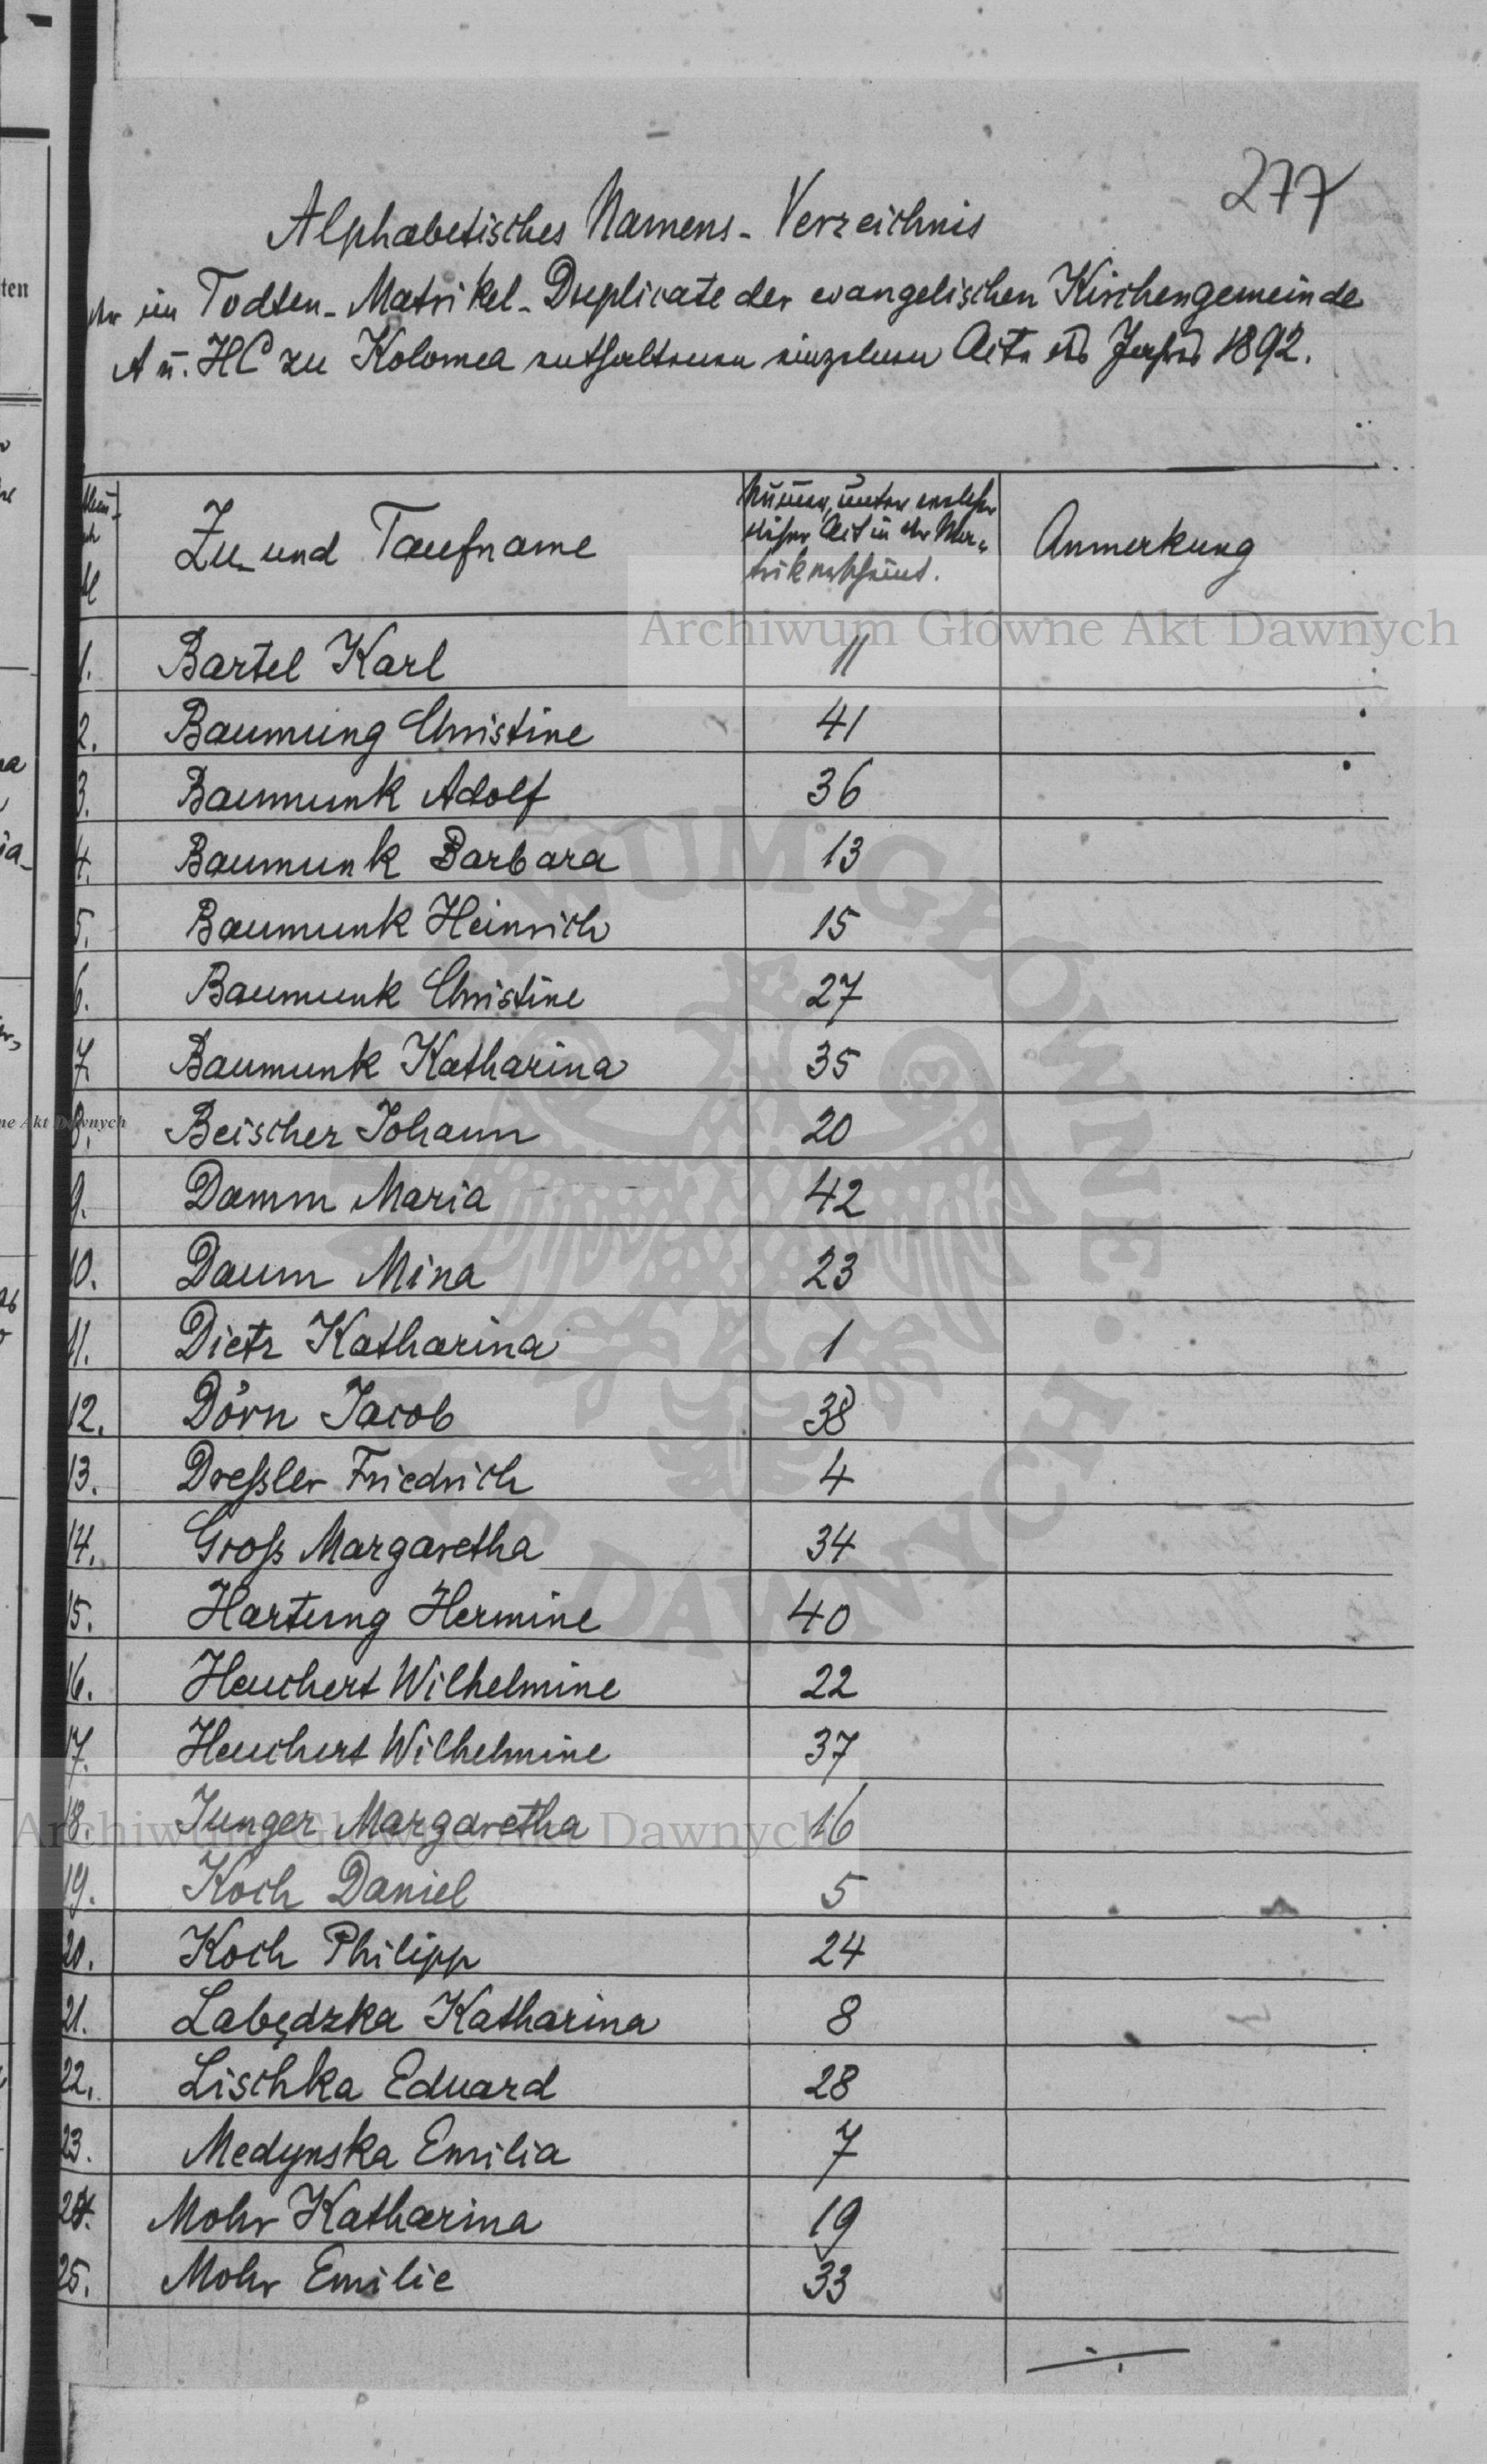 277
Alphabetisches Namens-Verzeichnis
der im Todten-Matrikel-Duplicate der evangelischen Kirchengemeinde
A u. HC zu Kolomea enthaltenen einzelnen Acte des Jahres 1892.
Zu- und Taufname
Nummer, unter welcher
dieser Act in der Ma-
trik erscheint.
Anmerkung
1. Bartel Karl 11
2. Baumung Christine 41
3. Baumunk Adolf 36
4. Baumunk Barbara 13
5. Baumunk Heinrich 15
6. Baumunk Christine 27
7. Baumunk Katharina 35
8. Beischer Johann 20
9. Damm Maria 42
10. Daum Mina 23
11. Dietz Katharina 1
12. Dörn Jacob 38
13. Dreßler Friedrich 4
14. Groß Margaretha 34
15. Hartung Hermine 40
16. Heuchert Wilhelmine 22
17. Heuchert Wilhelmine 37
18. Junger Margaretha 16
19. Koch Daniel 5
20. Koch Philipp 24
21. Labędzka Katharina 8
22. Lischka Eduard 28
23. Medynska Emilia 7
24. Mohr Katharina 19
25. Mohr Emilie 33
Archiwum Główne Akt Dawnych
Archiwum Główne Akt Dawnych